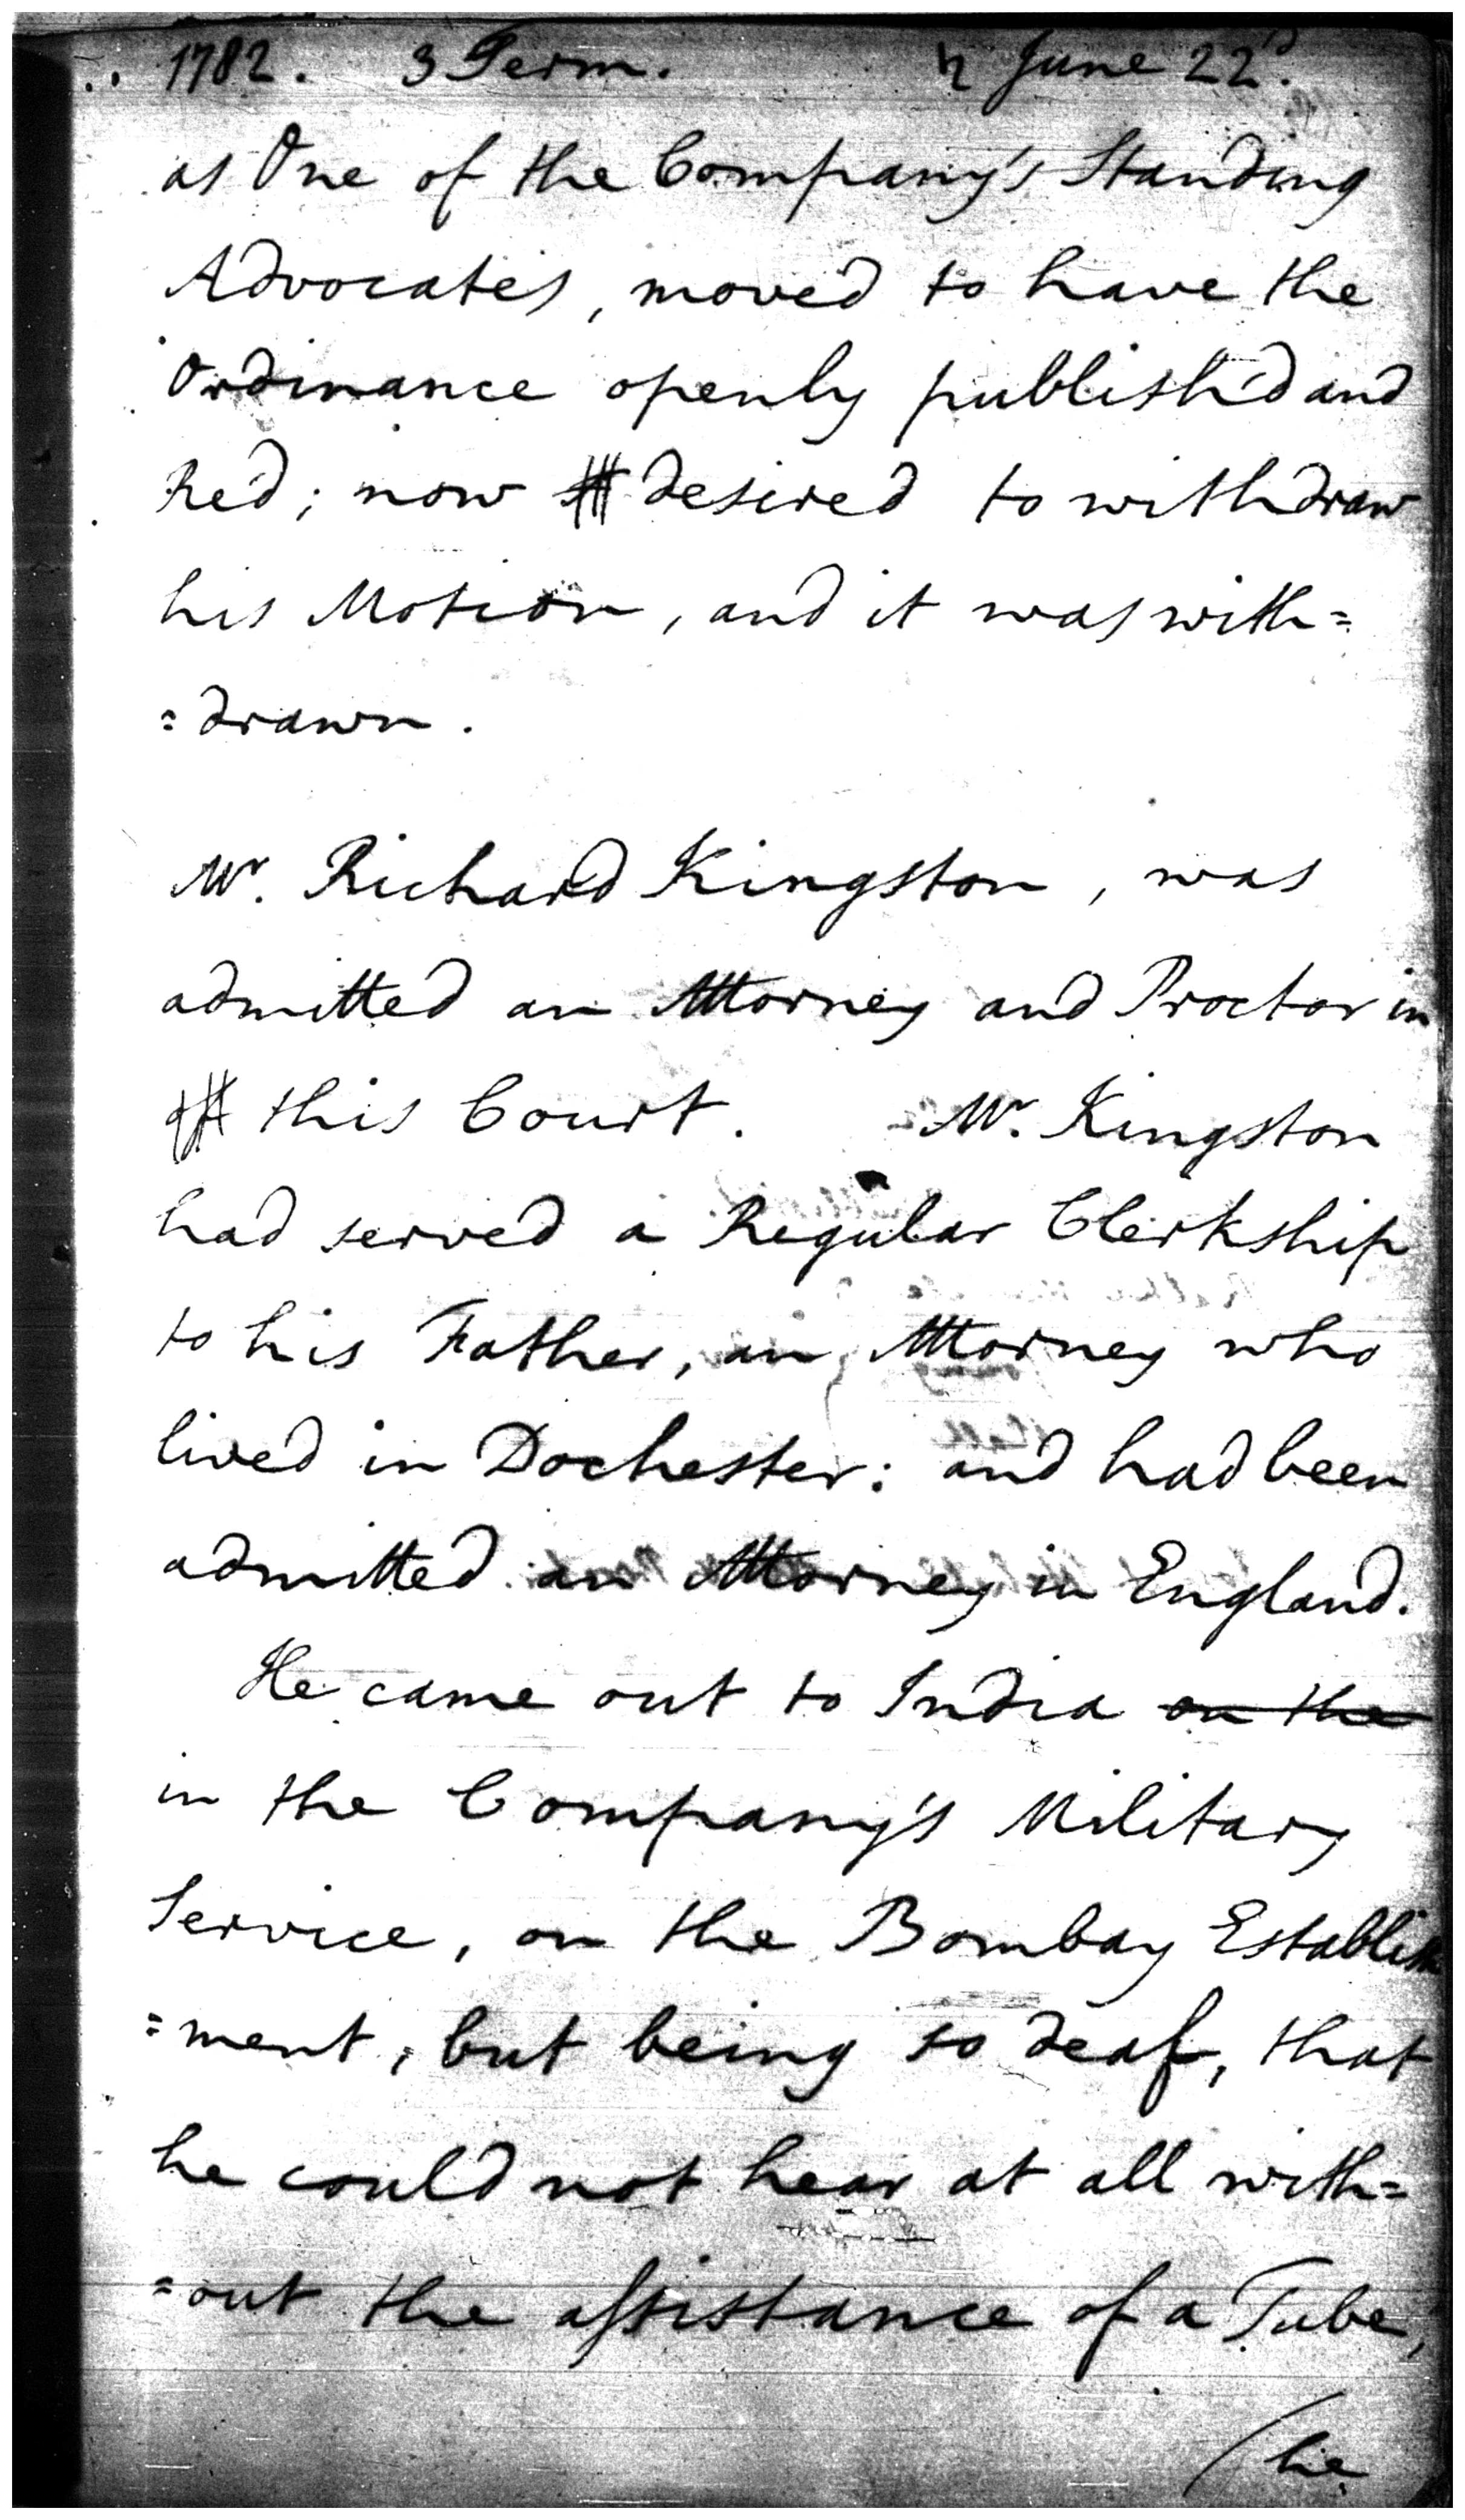 1782. 3 Term. ♄ June 22d.
as One of the Company's Standing
Advocates, moved to have the
Ordinance openly publish'd and
Red; now desired to withdraw
his Motion, and it was with=
=drawn.
Mr. Richard Kingston, was
admitted an Attorney and Proctor in
this Court. Mr. Kingston
had served a Regular Clerkship
to his Father, an Attorney who
lived in Dochester: and had been
admitted an Attorney in England.
He came out to India on the
in the Company's Military
Service, on the Bombay Establish
=ment, but being so deaf, that
he could not hear at all with=
=out the assistance of a Tube,
(he